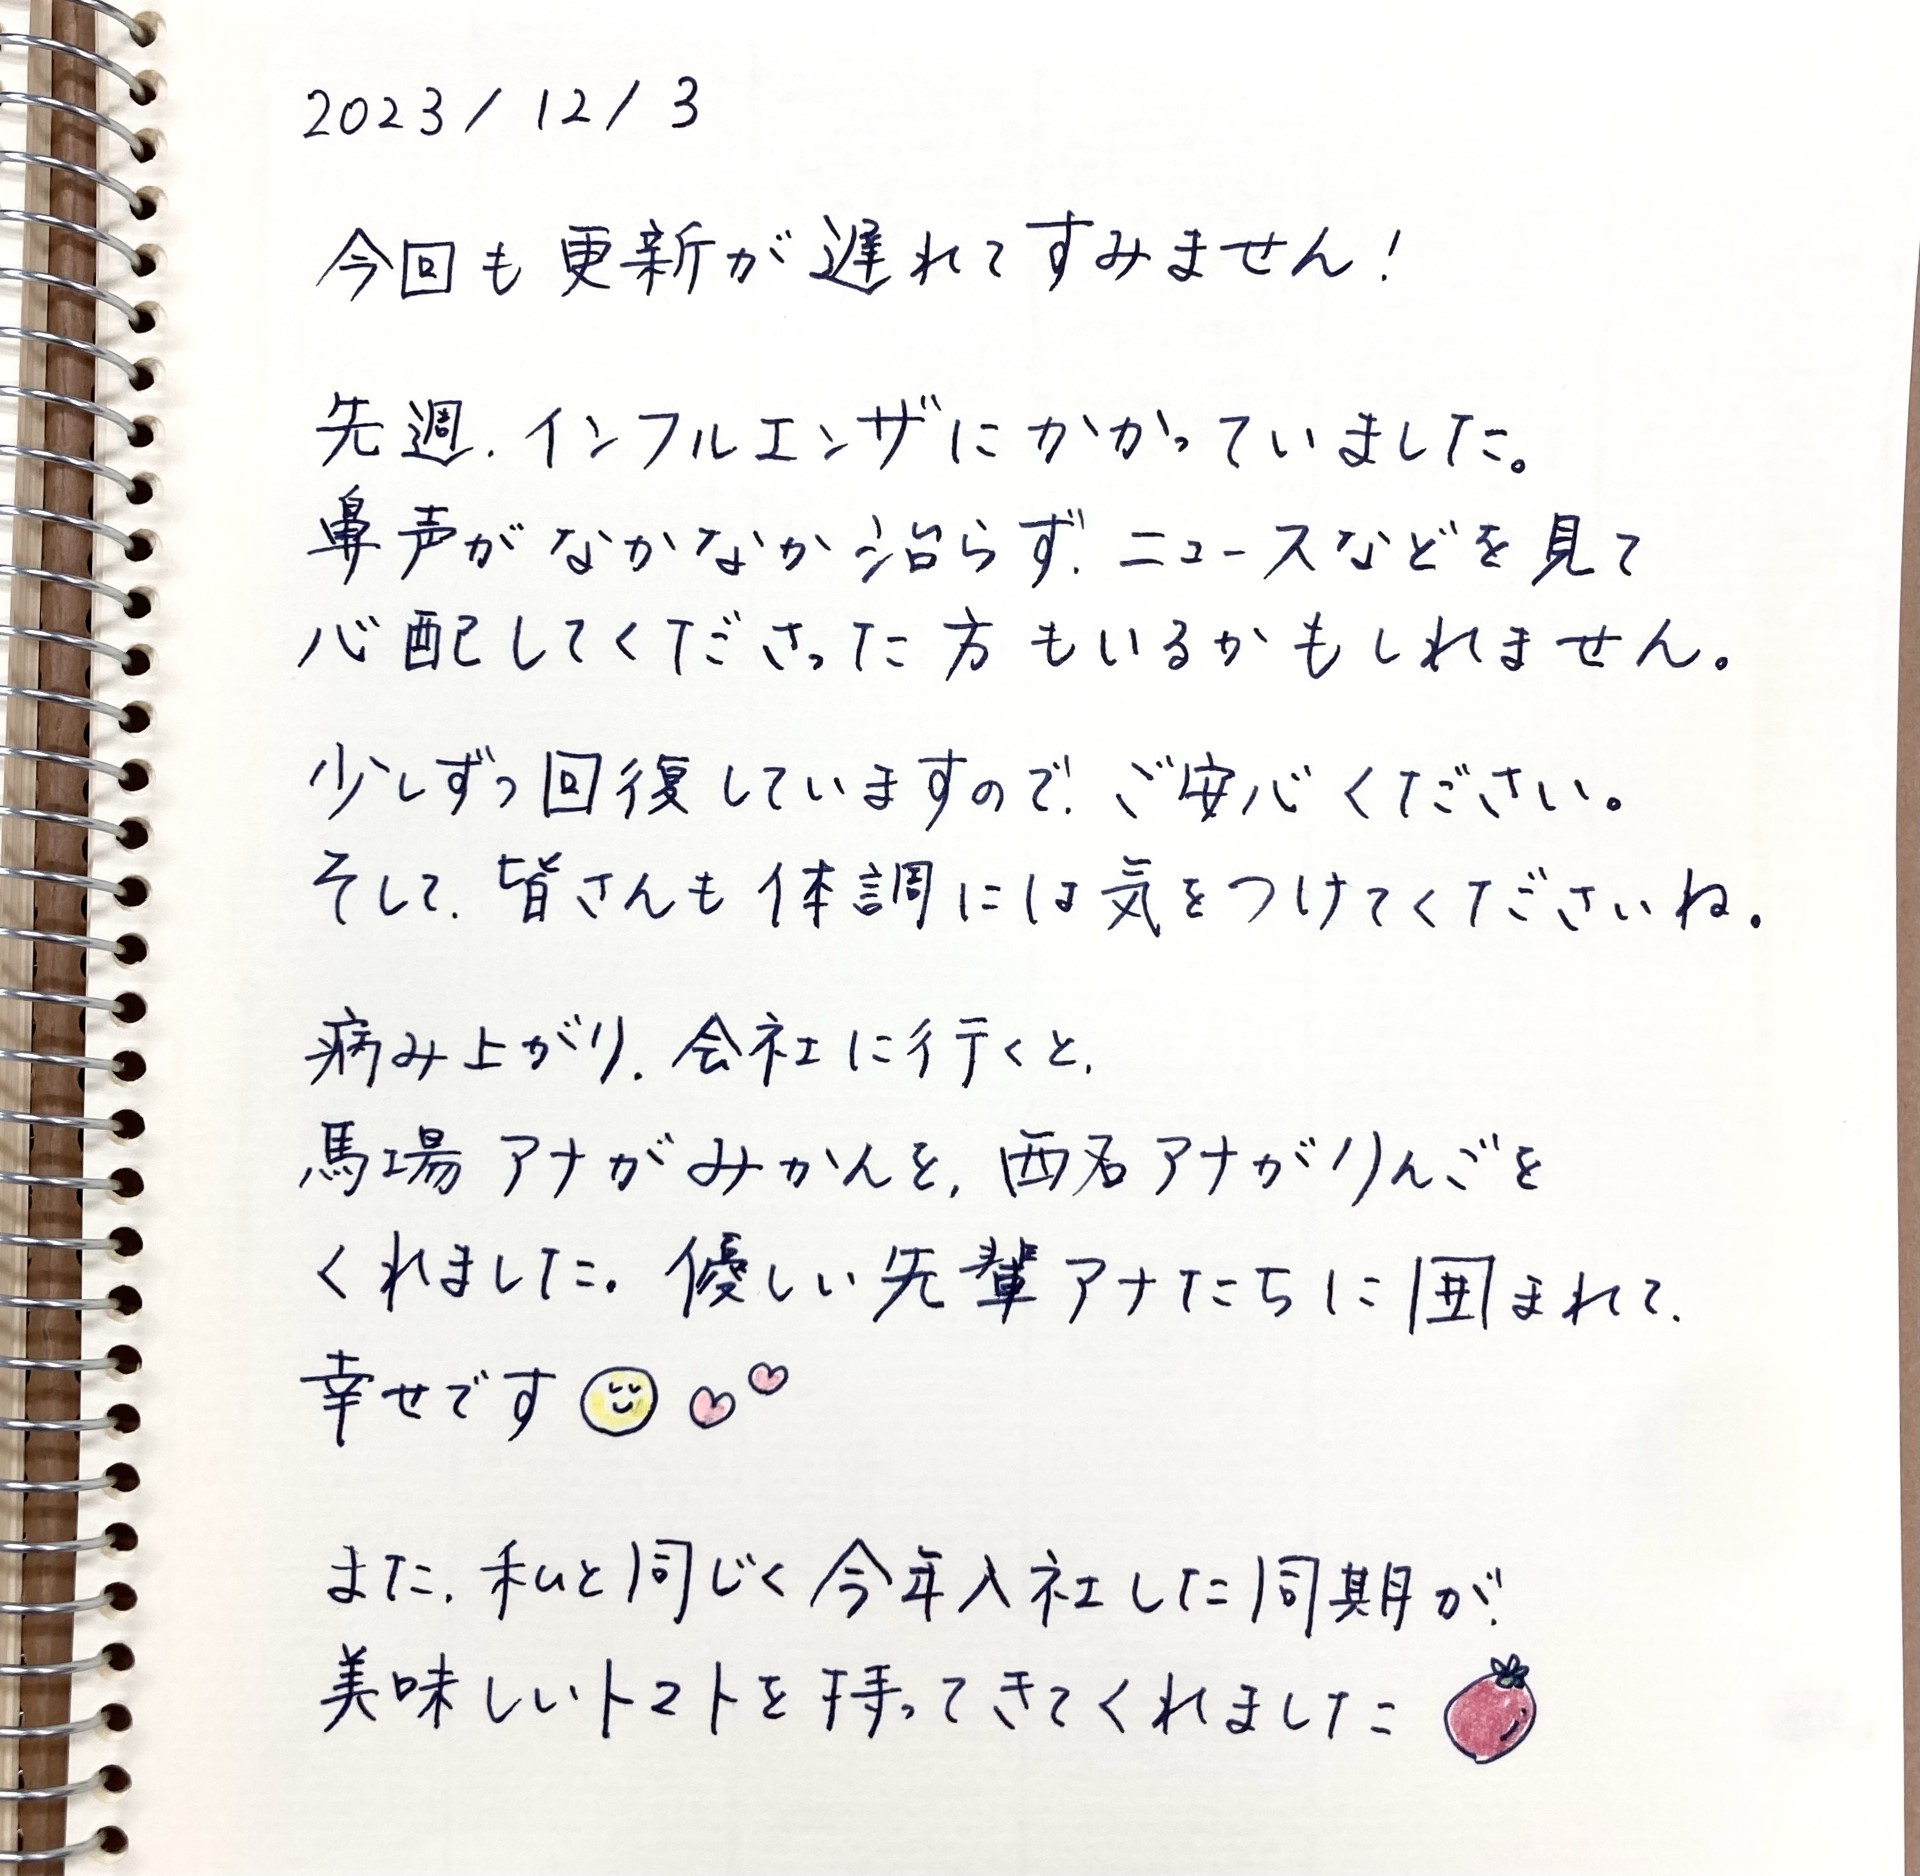 2023/12/3
今回も更新が遅れてすみません!
先週、インフルエンザにかかっていました。
鼻声がなかなか治らず、ニュースなどを見て
心配してくださった方もいるかもしれません。
少しずつ回復していますので、ご安心ください。
そして、皆さんも体調には気をつけてくださいね。
病み上がり、会社に行くと、
馬場アナがみかんを、西名アナがりんごを
くれました。優しい先輩アナたちに囲まれて、
幸せです
また、私と同じく今年入社した同期が、
美味しいトマトを持ってきてくれました